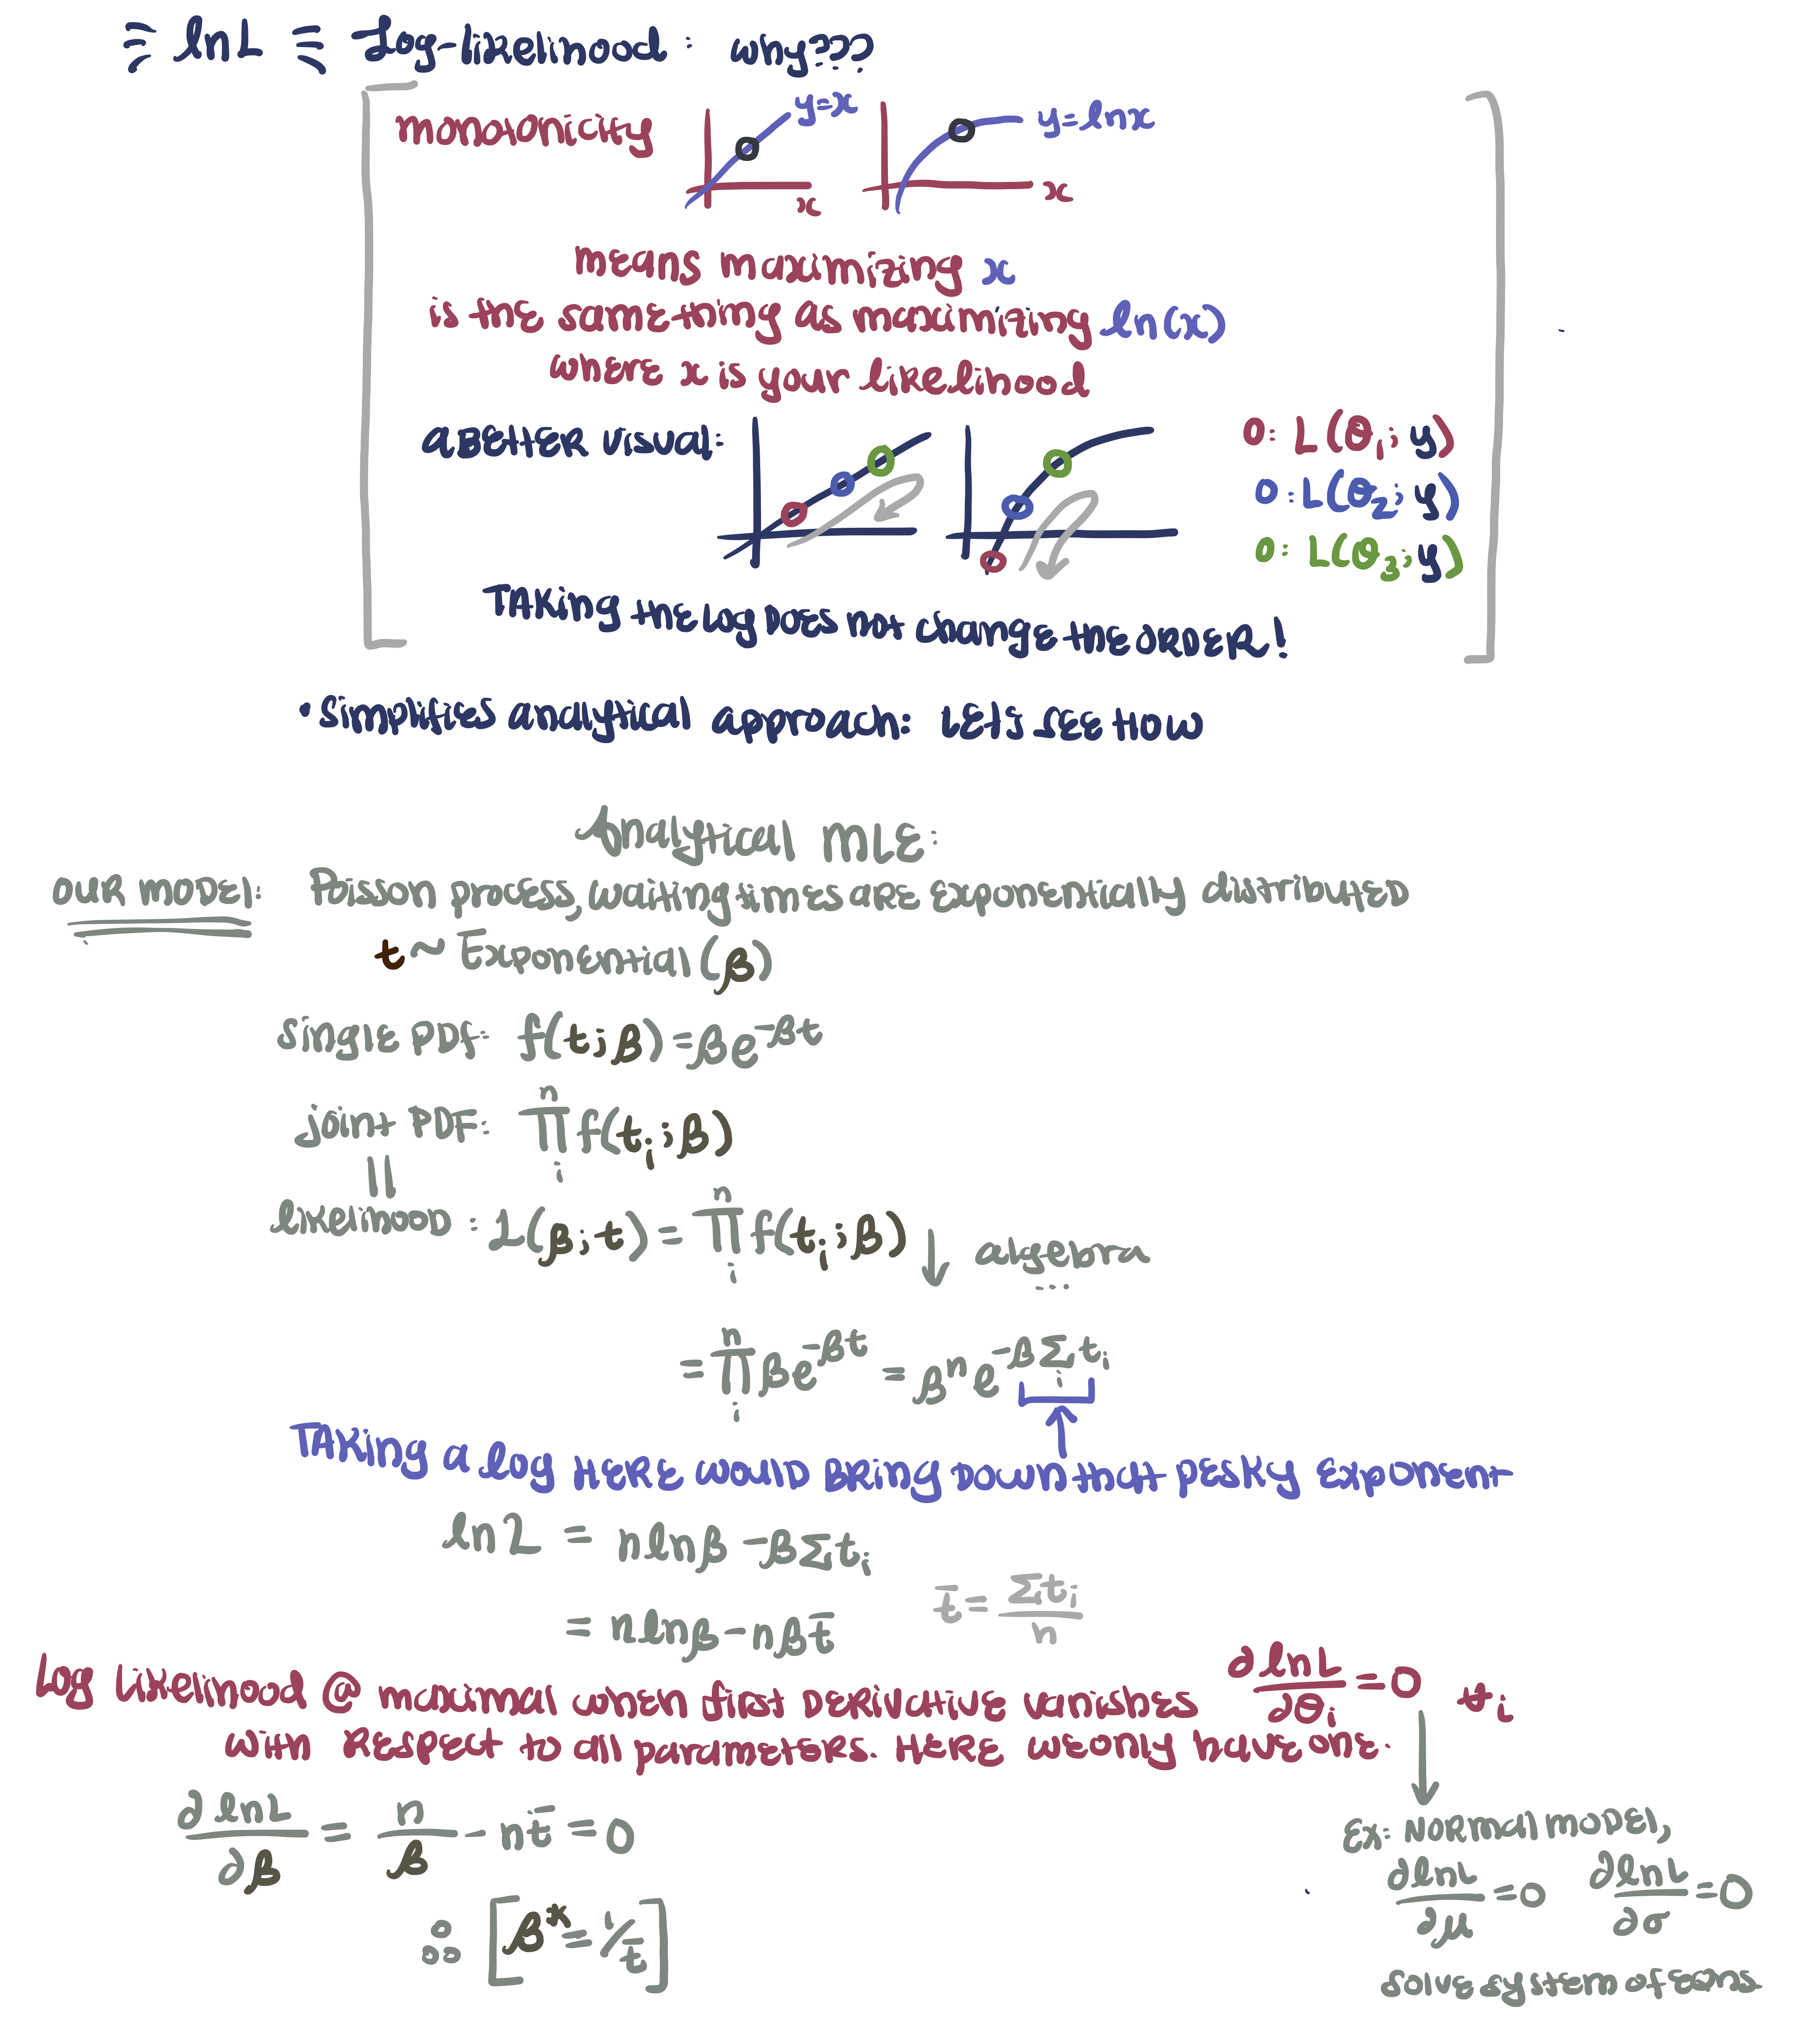 lnL Log-likelihood: why???
monotonicity y=x y=lnx
x x
means maximizing x
is the same thing as maximizing ln(x)
where x is your likelihood
a better visual:
O: L(θ₁; y)
O: L(θ₂; y)
O: L(θ₃; y)
Taking the log does not change the order!
• simplifies analytical approach: let's see how
Analytical MLE:
our model: Poisson process, waiting times are exponentially distributed
t ~ Exponential(β)
single PDF: f(t; β) = βe^{-βt}
joint PDF: ∏_i^n f(t_i; β)
||
likelihood: L(β; t) = ∏_i^n f(t_i; β) ↓ algebra ...
= ∏_i^n βe^{-βt} = β^n e^{-βΣ_i t_i}
Taking a log here would bring down that pesky exponent
ln L = n lnβ - βΣt_i
= n lnβ - nβt̄ t̄ = Σt_i / n
Log likelihood @ maximal when first derivative vanishes ∂lnL/∂θ_i = 0 ∀i
with respect to all parameters. Here we only have one.
∂lnL/∂β = n/β - nt̄ = 0
∴ [β* = 1/t̄]
Ex: Normal model,
∂lnL/∂μ = 0 ∂lnL/∂σ = 0
solve system of eqns.